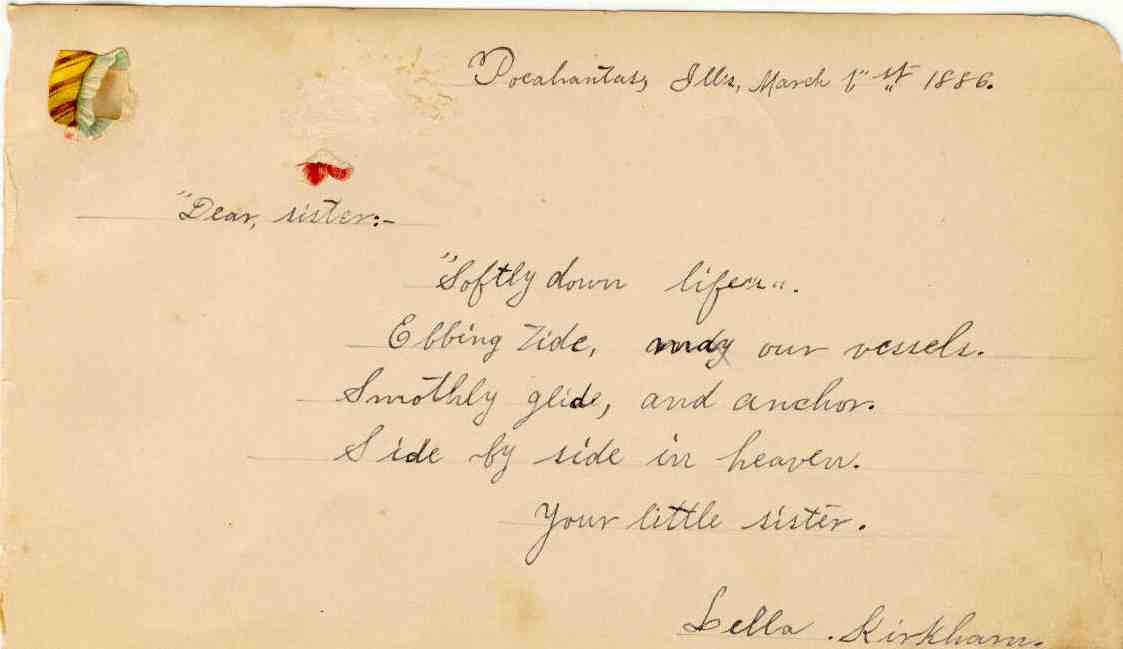 Pocahantas, Ills, March 1" st 1886.
"Dear, sister:-
"Softly down lifes".
Ebbing Tide, may our vessels.
Smothly glide, and anchor.
Side by side in heaven.
Your little sister.
Lella . Kirkham.